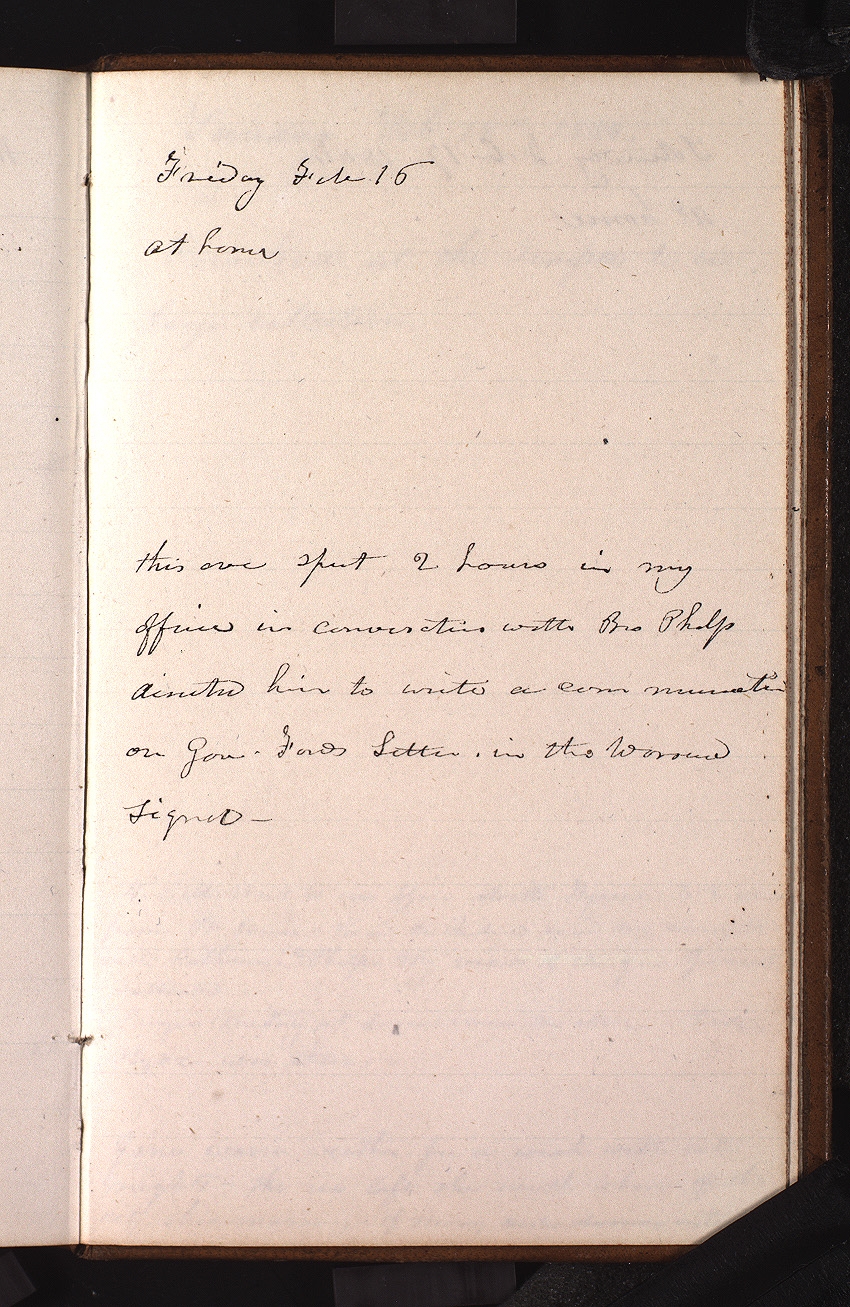 Friday Feb 16
at home
this eve spent 2 hours in my
office in conversation with Bro Phelps
directed him to write a communication
on Gov. Fords Letter. in the Warsaw
Signal —